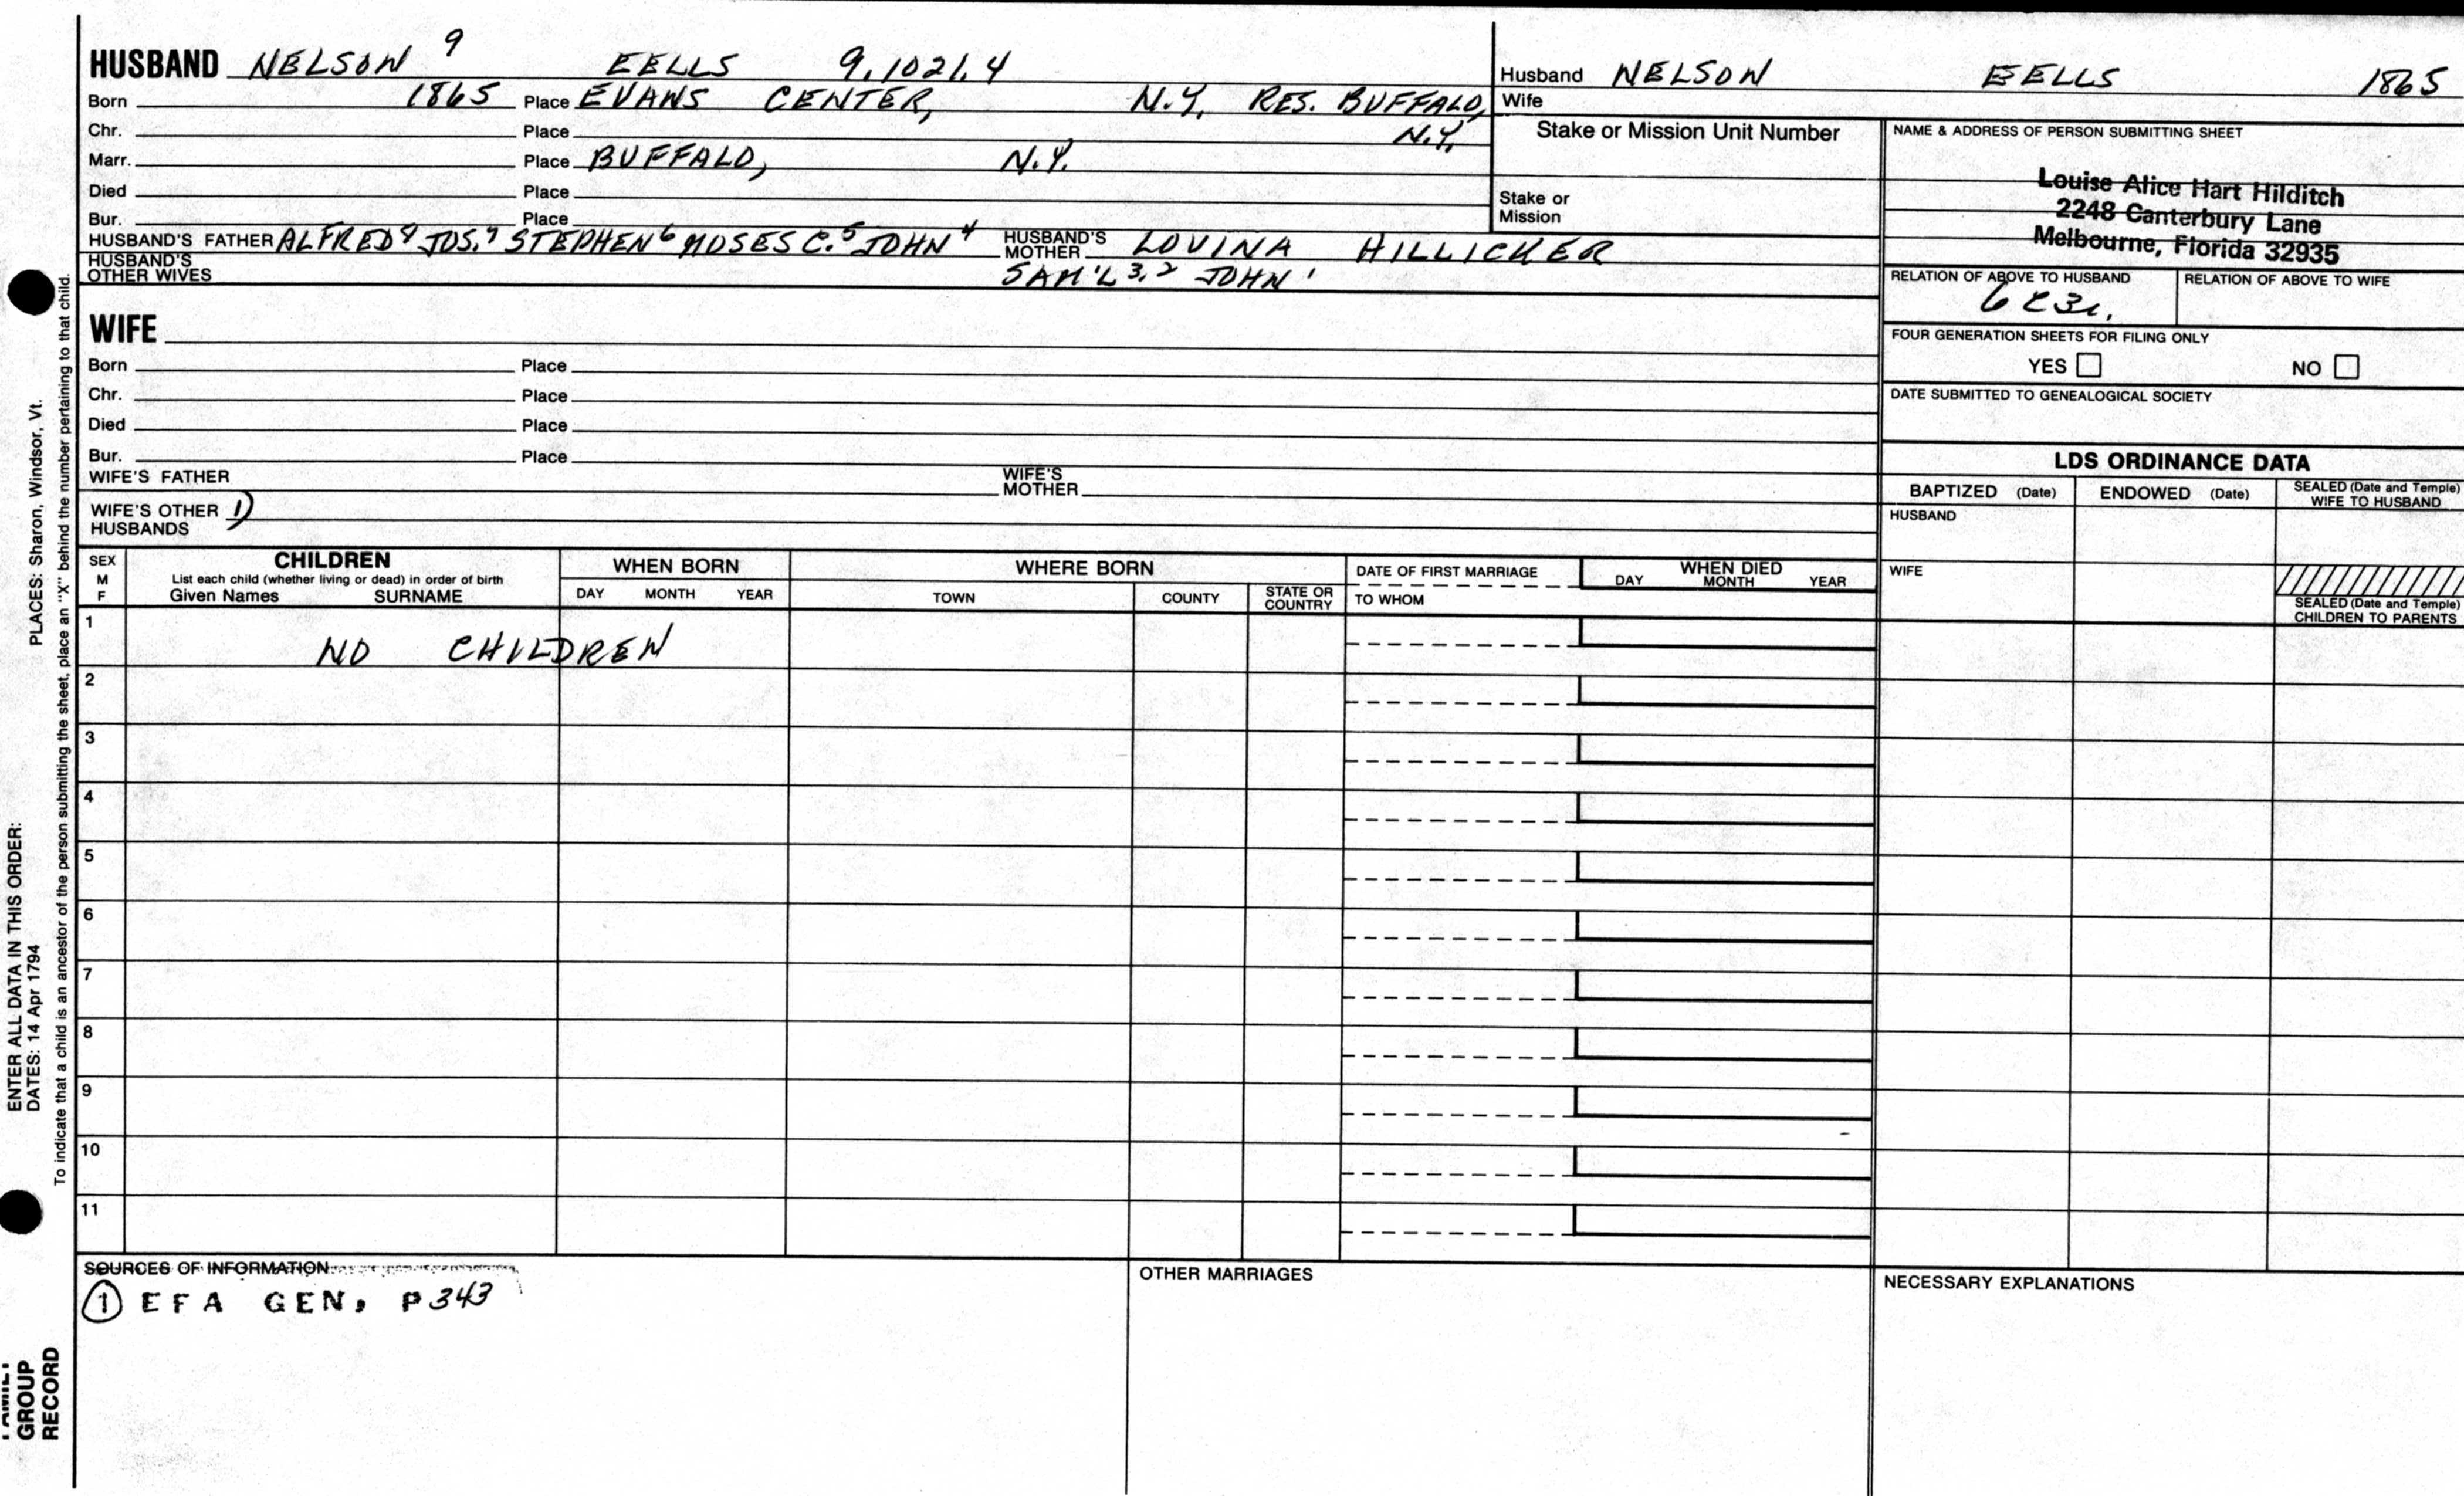 HUSBAND NELSON 9 EELLS 9.1021.4
Born 1865 Place EVANS CENTER, N.Y. RES. BUFFALO, N.Y.
Chr. Place
Marr. Place BUFFALO, N.Y.
Died Place
Bur. Place
HUSBAND'S FATHER ALFRED8 JOS.7 STEPHEN6 MOSES C.5 JOHN4 HUSBAND'S MOTHER LOVINA HILLICKER
HUSBAND'S OTHER WIVES SAM'L 3,2 JOHN 1
WIFE
Born Place
Chr. Place
Died Place
Bur. Place
WIFE'S FATHER WIFE'S MOTHER
WIFE'S OTHER HUSBANDS 1)
Husband NELSON EELLS 1865
Wife
Stake or Mission Unit Number
Stake or Mission
NAME & ADDRESS OF PERSON SUBMITTING SHEET
Louise Alice Hart Hilditch
2248 Canterbury Lane
Melbourne, Florida 32935
RELATION OF ABOVE TO HUSBAND RELATION OF ABOVE TO WIFE
FOUR GENERATION SHEETS FOR FILING ONLY
YES NO
DATE SUBMITTED TO GENEALOGICAL SOCIETY
LDS ORDINANCE DATA
BAPTIZED (Date) ENDOWED (Date) SEALED (Date and Temple) WIFE TO HUSBAND
HUSBAND
WIFE
SEALED (Date and Temple) CHILDREN TO PARENTS
SEX M F
CHILDREN
List each child (whether living or dead) in order of birth
Given Names SURNAME
WHEN BORN
DAY MONTH YEAR
WHERE BORN
TOWN COUNTY STATE OR COUNTRY
DATE OF FIRST MARRIAGE
TO WHOM
WHEN DIED
DAY MONTH YEAR
1 NO CHILDREN
2
3
4
5
6
7
8
9
10
11
SOURCES OF INFORMATION
1 EFA GEN. P343
OTHER MARRIAGES
NECESSARY EXPLANATIONS
ENTER ALL DATA IN THIS ORDER:
DATES: 14 Apr 1794 PLACES: Sharon, Windsor, Vt.
To indicate that a child is an ancestor of the person submitting the sheet, place an "X" behind the number pertaining to that child.
GROUP
RECORD